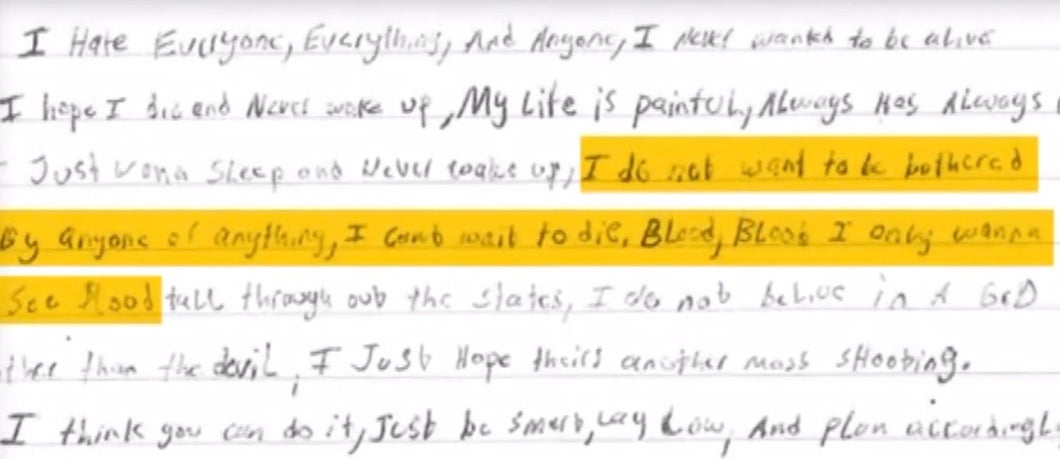 I Hate Everyone, Everything, And Anyone, I Never wanted to be alive
I hope I die and Never wake up, My Life is painful, ALways Has ALways
Just wana Sleep and Never wake up, I do not want to be bothered
By anyone of anything, I Cant wait to die, BLood, BLood I only wanna
See Blood fall through out the states, I do not belive in A GOD
ther than the devil, I Just Hope theirs another mass sHooting.
I think you can do it, Just be smart, Lay Low, And plan accordingL